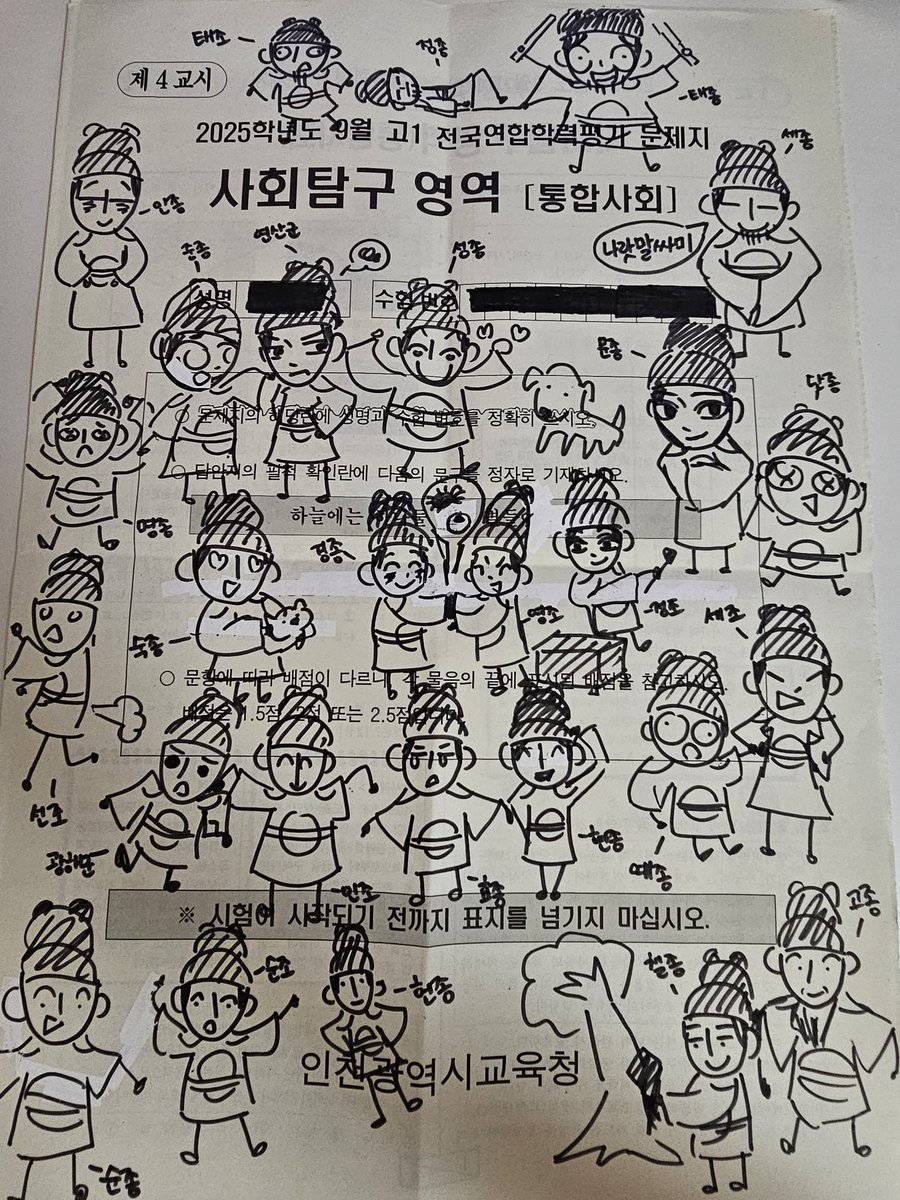 태조
정종
태종
제 4 교시
2025학년도 9월 고1 전국연합학력평가 문제지
세종
사회탐구 영역 [통합사회]
인종
나랏말싸미
중종
연산군
성종
성명
수험 번호
문종
단종
○ 문제지의 해당란에 성명과 수험 번호를 정확히 쓰시오.
○ 답안지의 필적 확인란에 다음의 문구를 정자로 기재하시오.
하늘에는
명종
경종
영조
정조
세조
숙종
○ 문항에 따라 배점이 다르니, 각 물음의 끝에 표시된 배점을 참고하시오.
배점은 1.5점, 2점 또는 2.5점입니다.
선조
광해군
인조
효종
현종
예종
※ 시험이 시작되기 전까지 표지를 넘기지 마십시오.
고종
순조
헌종
철종
인천광역시교육청
순종